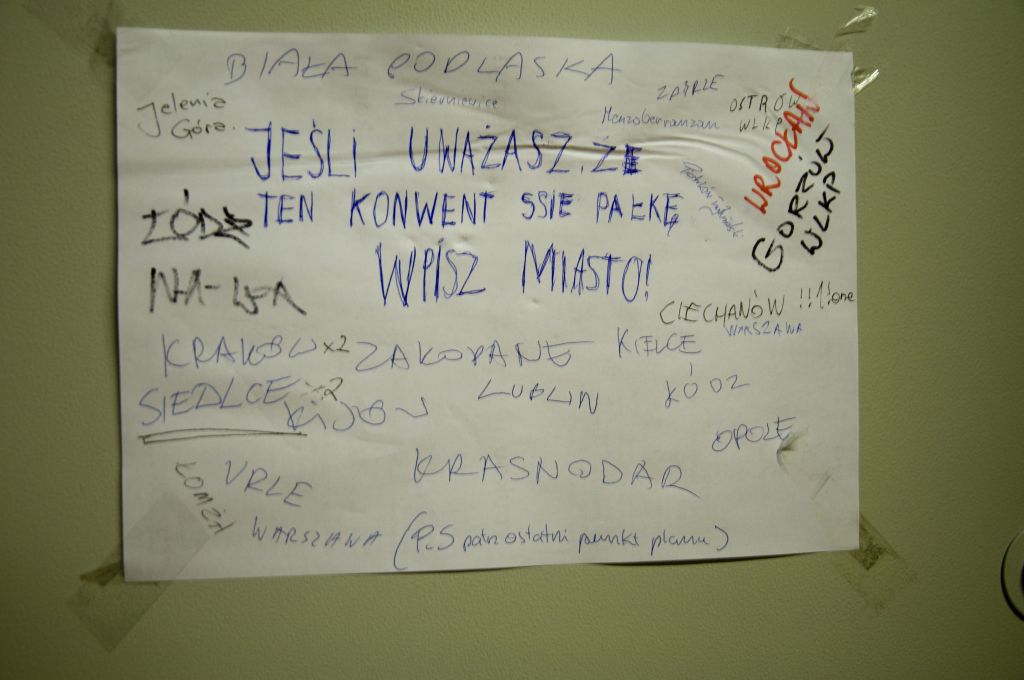 BIAŁA PODLASKA
Skierniewice
Jelenia
Góra.
OSTRÓW
WLKP
Menzoberranzan
WROCŁAW
GORZÓW
WLKP
JEŚLI UWAŻASZ, ŻE
TEN KONWENT SSIE PAŁKĘ
WPISZ MIASTO!
ŁÓDŹ
CIECHANÓW !!1!one
WARSZAWA
KRAKÓW x2 ZAKOPANE KIELCE
SIEDLCE x2 KIJÓW LUBLIN ŁÓDZ
OPOLE
ŁOMŻA
URLE
KRASNODAR
WARSZAWA (P.S patrz ostatni punkt planu)